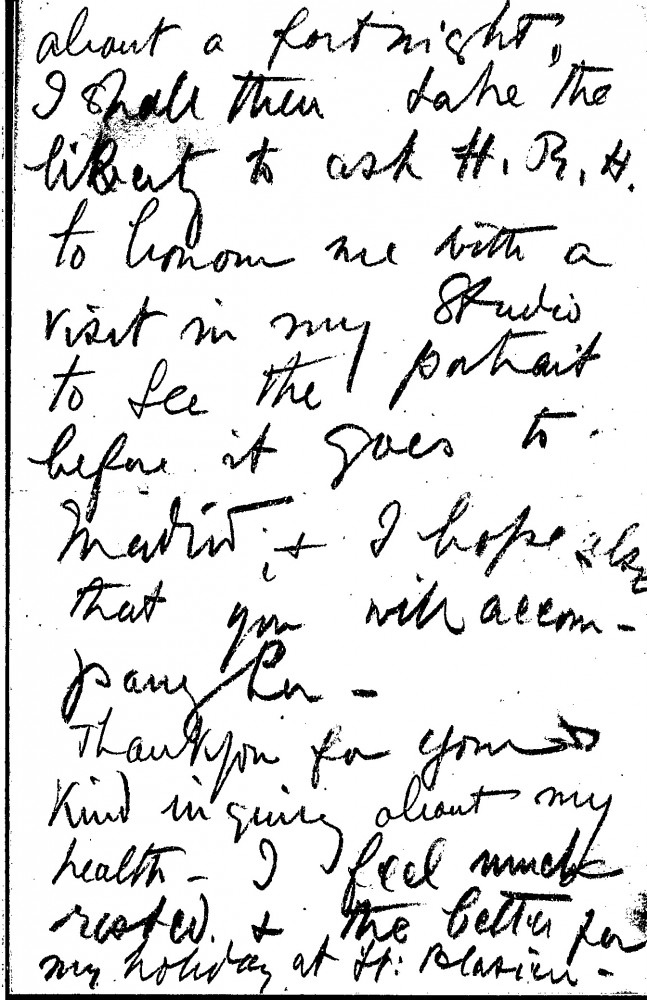 about a fortnight,
I shall then take the
liberty to ask H. R. H.
to honour me with a
visit in my Studio
to see the portrait
before it goes to
Madrid, & I hope also
that you will accom-
pany her -
Thank you for your
kind inquiry about my
health - I feel much
rested & the better for
my holiday at St: Blasien -